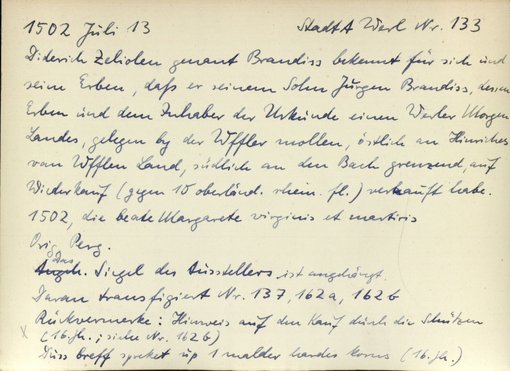 1502 Juli 13 StadtA Werl Nr. 133
Diderich Zeliolen genant Brandiss bekennt für sich und
seine Erben, daß er seinem Sohn Jürgen Brandiss, dessen
Erben und dem Inhaber der Urkunde einen Werler Morgen
Landes, gelegen by der Uffler mollen, östlich an Hinriches
van Ufflen Land, südlich an den Bach grenzend, auf
Wiederkauf (gegen 10 oberländ. rhein. fl.) verkauft habe.
1502, die beate Margarete virginis et martiris
Orig. Perg.
Das Siegel des Ausstellers ist angehängt
Daran transfigiert Nr. 137, 162a, 162b
Rückvermerke: Hinweis auf den Kauf durch die Schützen
(16. Jh.; siehe Nr. 162b)
Duss breff spreket up 1 malder hardes korns (16. Jh.)